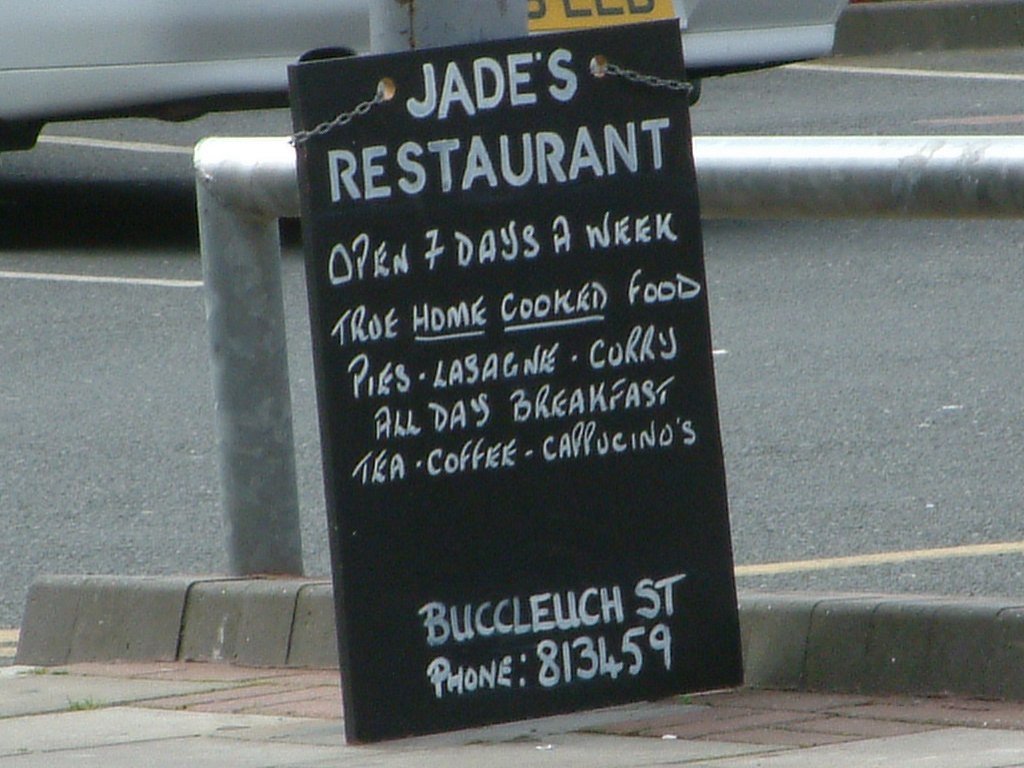 JADE'S
RESTAURANT
OPEN 7 DAYS A WEEK
TRUE HOME COOKED FOOD
PIES - LASAGNE - CURRY
ALL DAY BREAKFAST
TEA - COFFEE - CAPPUCINO'S
BUCCLEUCH ST
PHONE: 813459